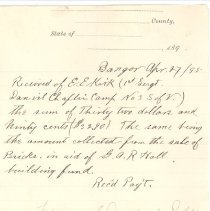 County,
State of
189
Bangor Apr. 27/95
Received of E.E. Kirk (1st Sergt.
Daniel Chaplin Camp No 3 S of V.)
the sum of Thirty two dollars and
Ninty cents ($32.90) The same being
the amount collected from the sale of
Bricks. in aid of G.A.R Hall
building fund.
Recd Payt.